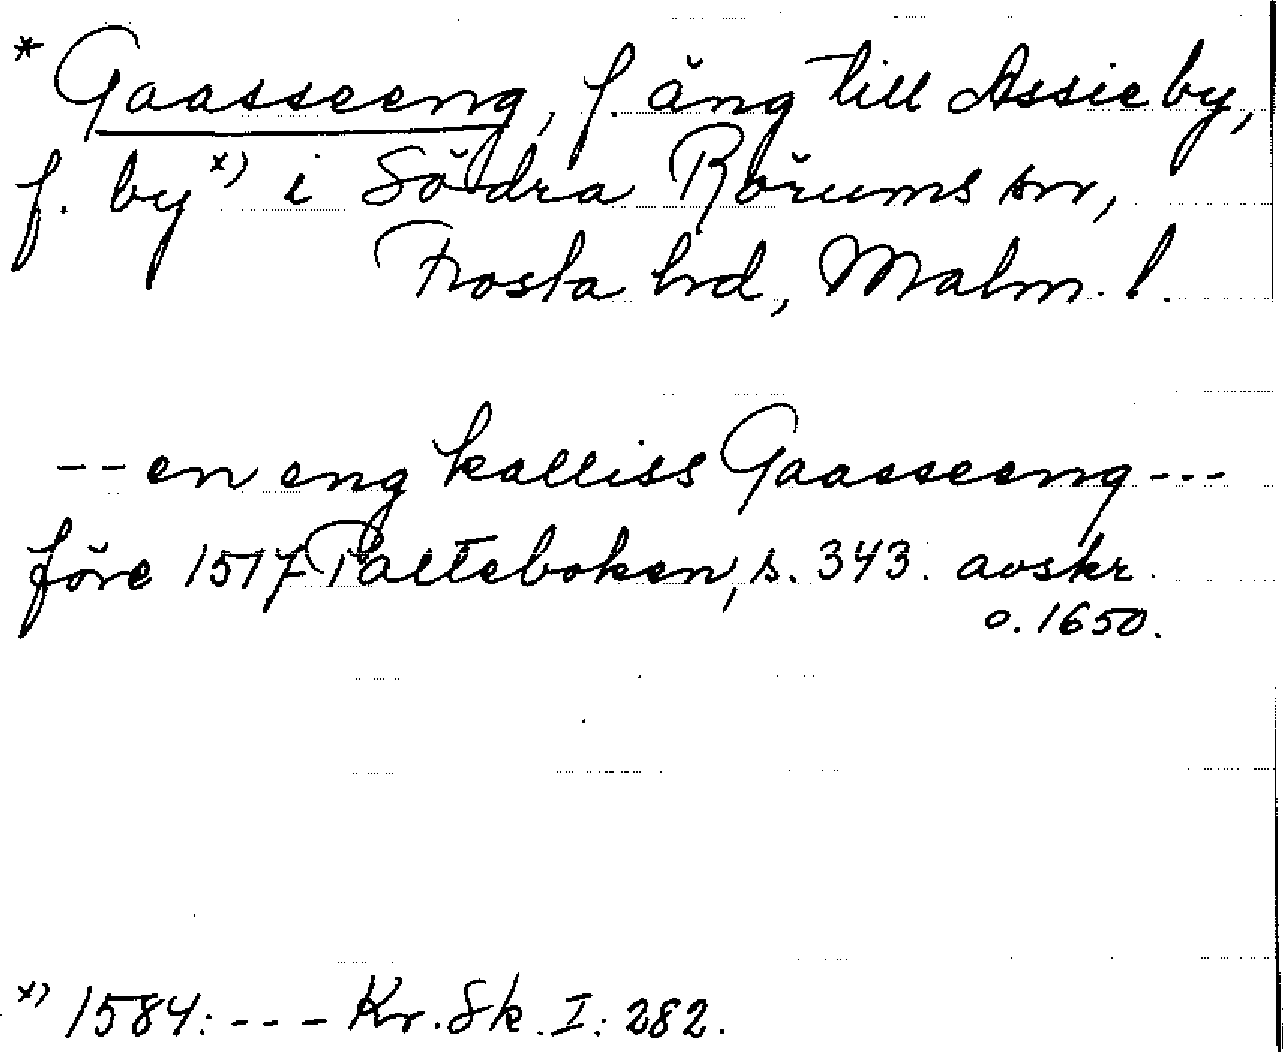 * Gaasseeng, f. äng till Assie by,
f. by x) i Södra Rörums sn,
Frosta hd, Malm. l.
-- en eng kalliss Gaasseeng ---
före 1517 Palteboken, s. 343. avskr.
o. 1650.
x) 1584: --- Kr. Sk. I: 282.